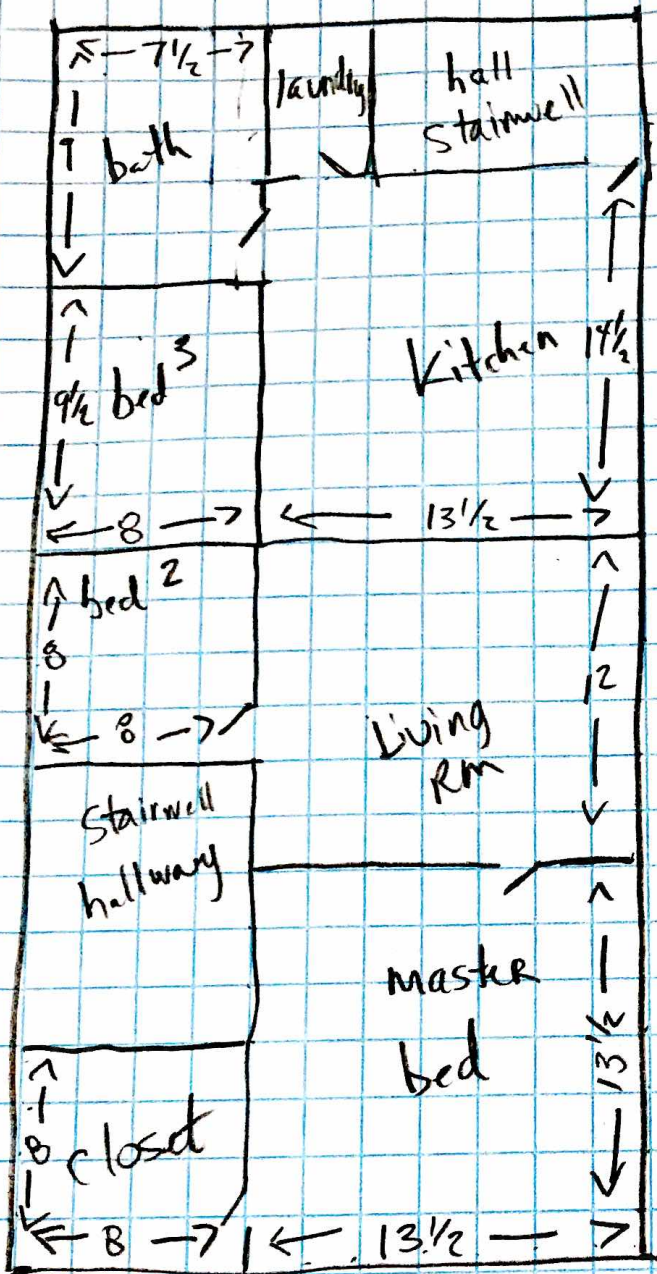 7 1/2
laundry
hall
stairwell
bath
Kitchen
14 1/2
9 1/2
bed 3
8
13 1/2
bed 2
8
12
8
Living
RM
Stairwell
hallway
master
bed
13 1/2
8
closet
8
13 1/2